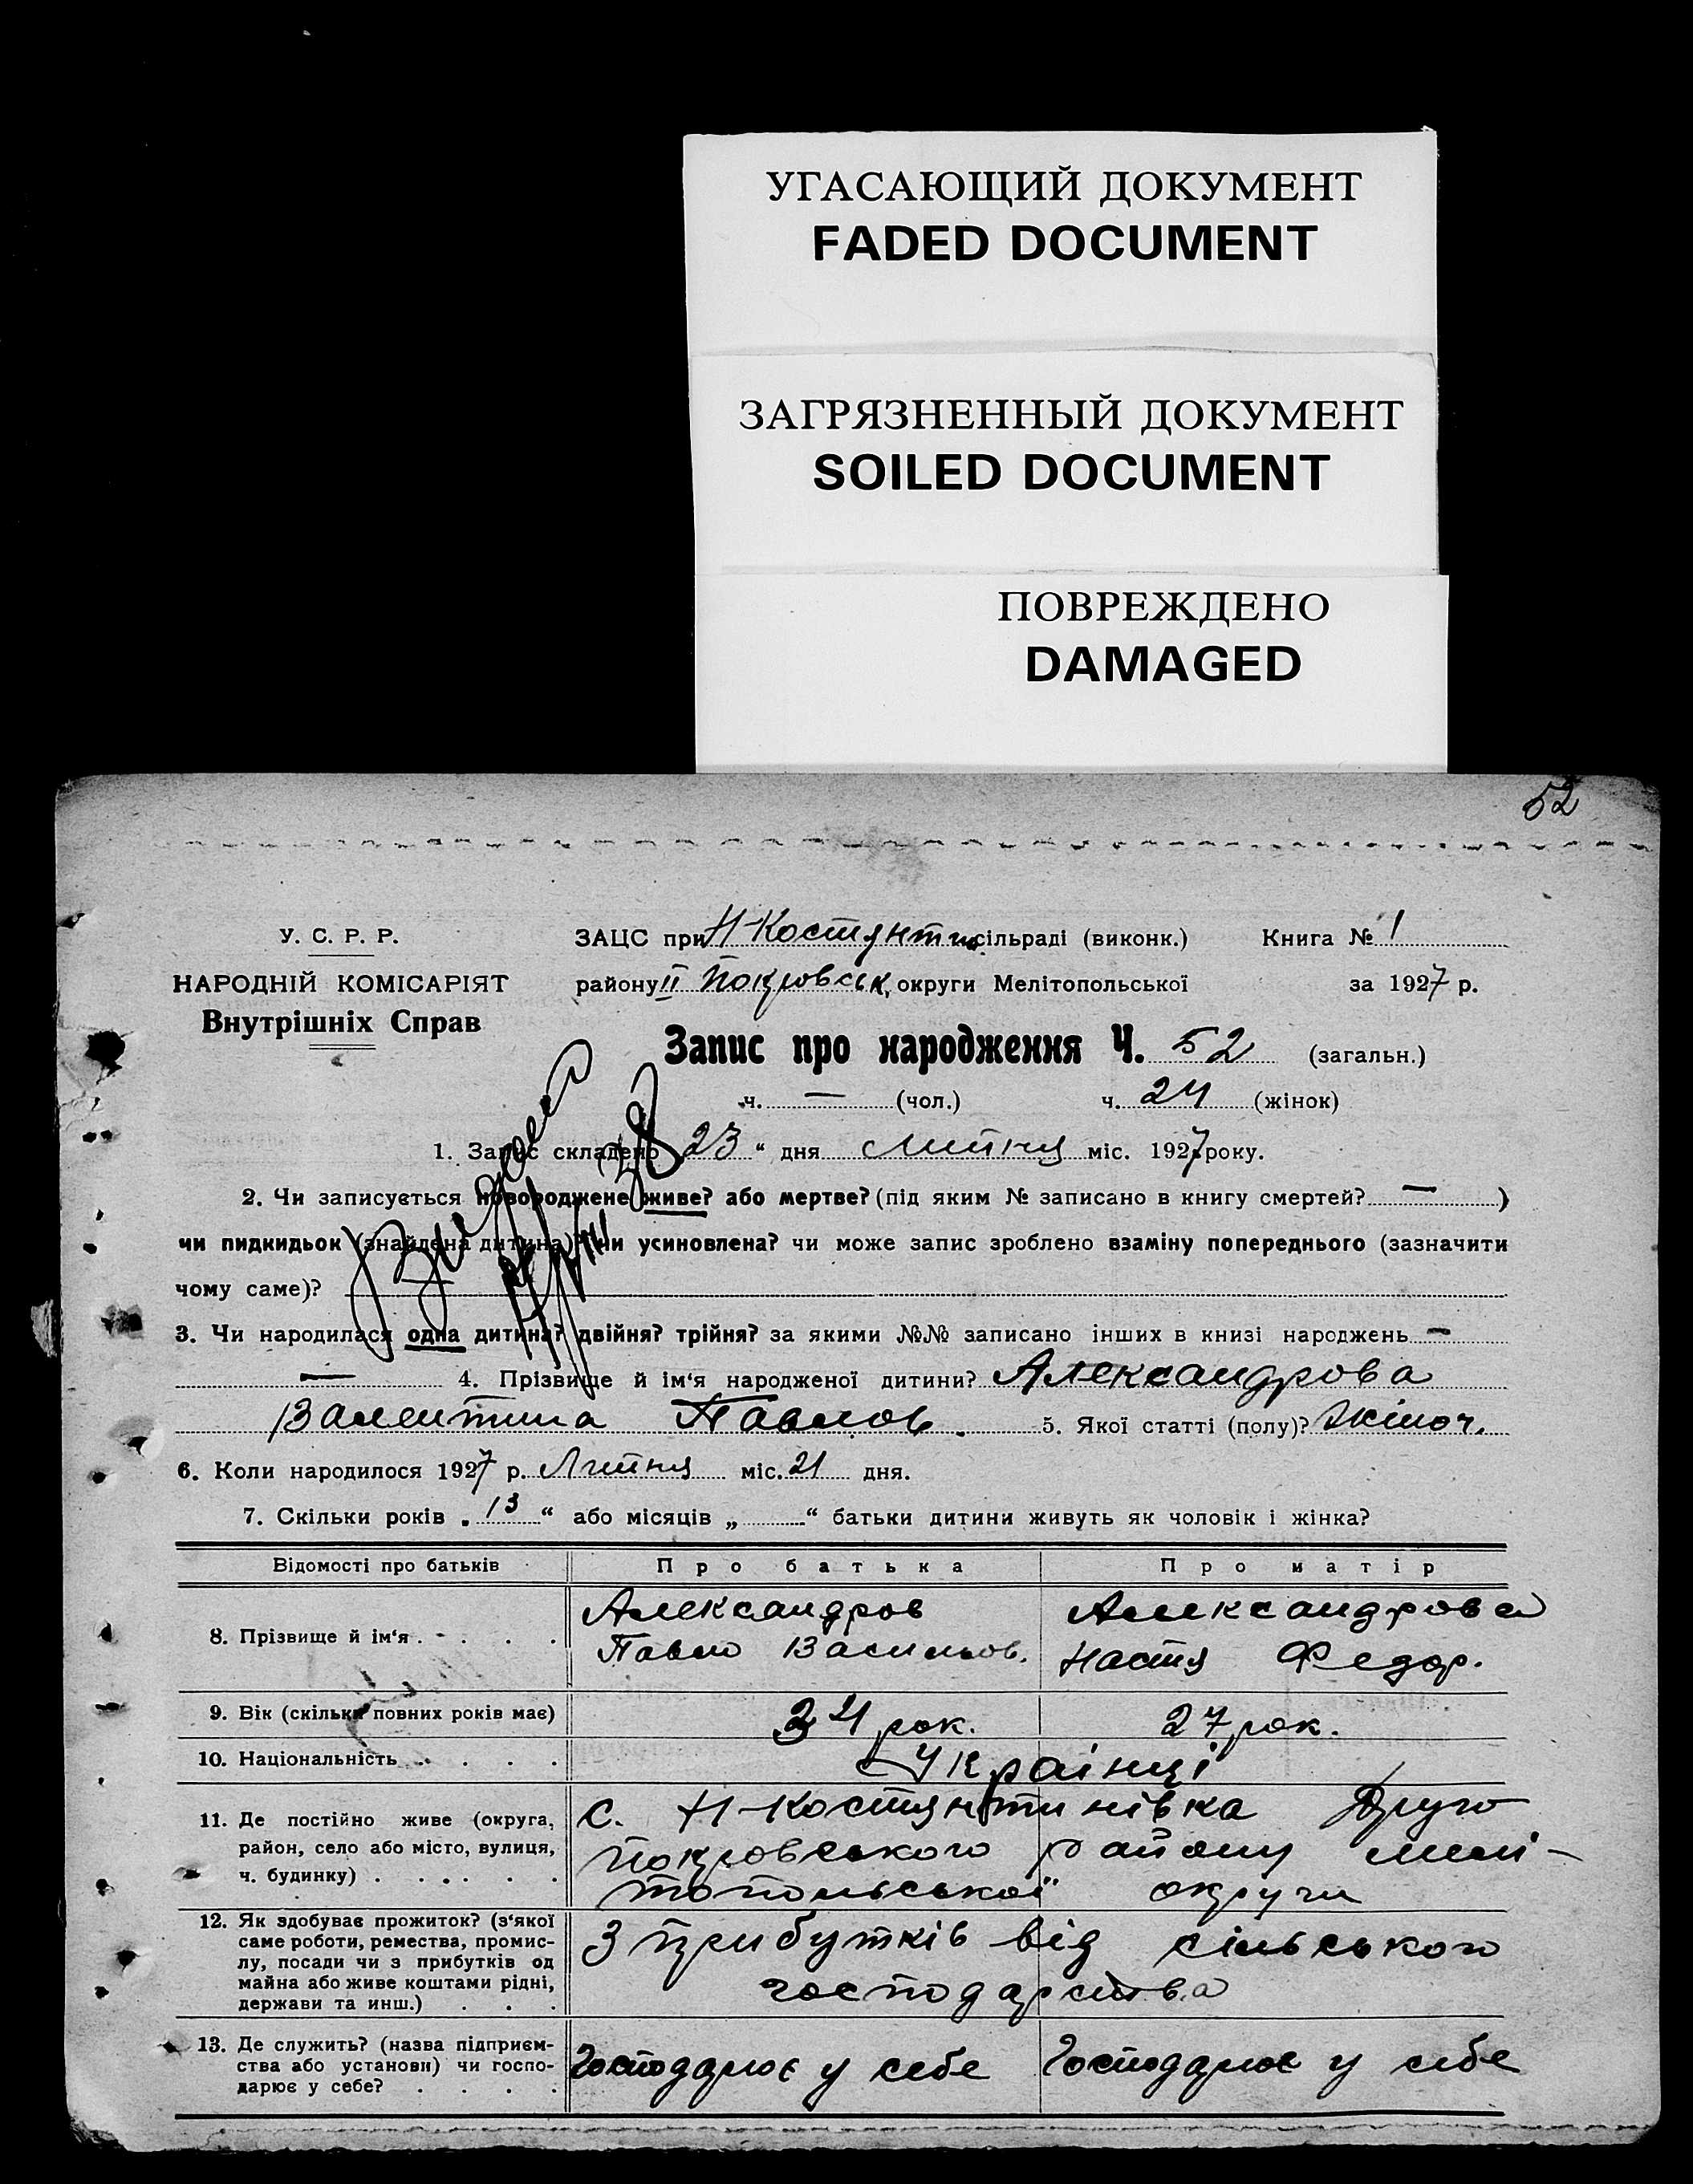 УГАСАЮЩИЙ ДОКУМЕНТ
FADED DOCUMENT
ЗАГРЯЗНЕННЫЙ ДОКУМЕНТ
SOILED DOCUMENT
ПОВРЕЖДЕНО
DAMAGED
52
У. С. Р. Р.
НАРОДНІЙ КОМІСАРІЯТ
Внутрішніх Справ
ЗАЦС при Н-Костянтин сільраді (виконк.) Книга № 1
району ІІ Покровськ. округи Мелітопольської за 1927 р.
Запис про народження Ч. 52 (загальн.)
ч. — (чол.) ч. 24 (жінок)
1. Запис складено 23 “ дня Липня міс. 1927 року.
2. Чи записується новороджене живе? або мертве? (під яким № записано в книгу смертей? — )
чи пидкидьок (знайдена дитина)? чи усиновлена? чи може запис зроблено взаміну попереднього (зазначити
чому саме)?
3. Чи народилася одна дитина? двійня? трійня? за якими №№ записано інших в книзі народжень —
— 4. Прізвище й ім‘я народженої дитини? Александрова
Валентина Павлов. 5. Якої статті (полу)? Жіноч.
6. Коли народилося 1927 р. Липня міс. 21 дня.
7. Скільки років „ 13 “ або місяців „ “ батьки дитини живуть як чоловік і жінка?
Відомості про батьків Про батька Про матір
8. Прізвище й ім‘я . . . . .
Александров
Павло Васильов.
Александрова
Настя Федор.
9. Вік (скільки повних років має) 34 рок. 27 рок.
10. Національність . . . . Українці
11. Де постійно живе (округа,
район, село або місто, вулиця,
ч. будинку) . . . . . .
с. Н-Костянтинівка Друго
Покровського району Мелі-
топольської округи
12. Як здобуває прожиток? (з‘якої
саме роботи, ремества, промис-
лу, посади чи з прибутків од
майна або живе коштами рідні,
держави та инш.) . . .
З прибутків від сільського
господарства
13. Де служить? (назва підприєм-
ства або установи) чи госпо-
дарює у себе? . . . .
Господарює у себе Господарює у себе